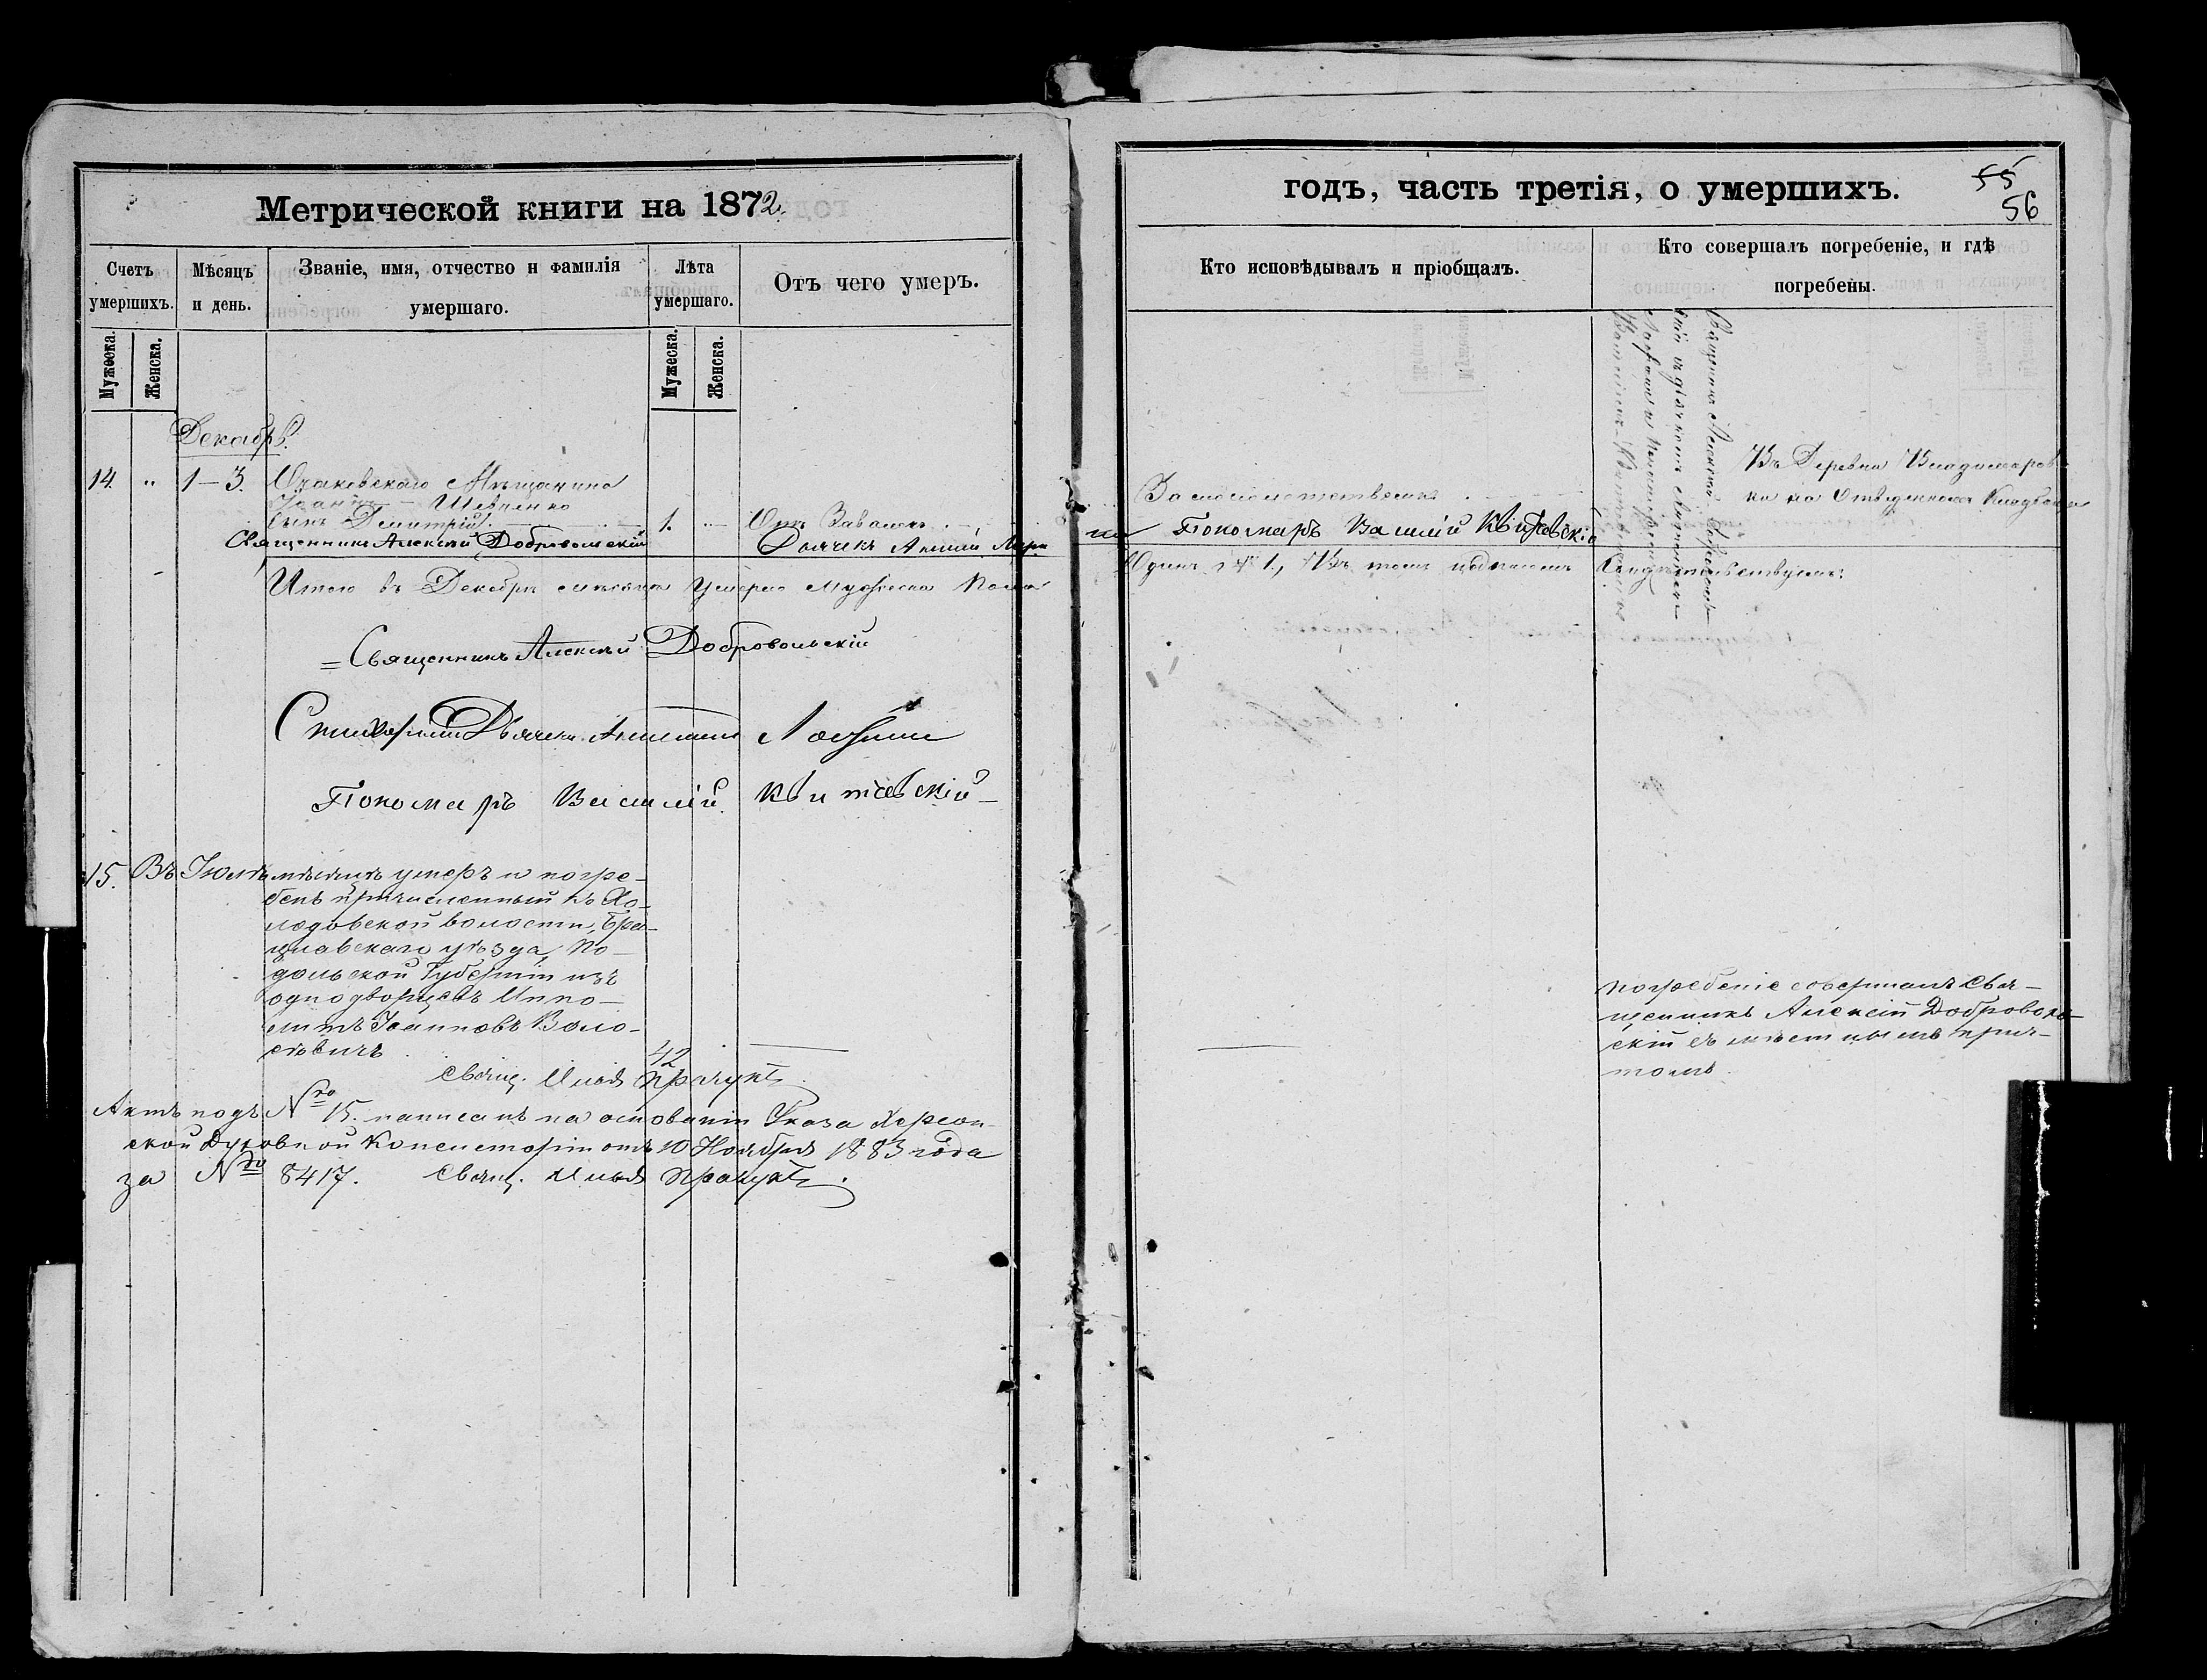 Метрической книги на 1872
Счетъ умершихъ.
Мужеска.
Женска.
Мѣсяцъ и день.
Званіе, имя, отчество и фамилія умершаго.
Лѣта умершаго.
Мужеска.
Женска.
Отъ чего умеръ.
Декабрь.
14. „ 1–3. Очаковскаго Мѣщанина
Іоанна Шевченко
сынъ Димитрій 1. „
Священникъ Алексій Добровольскій
Итого въ Декабрѣ мѣсяцѣ умерло мужеска пола
Священникъ Алексій Добровольскій
Пономарь Василій Квитавскій
15. Въ Іюлѣ мѣсяцѣ умеръ и погре-
бенъ причисленный къ Хо-
лодовской волости, Бра-
цлавскаго уѣзда, По-
дольской Губерніи изъ
однодворцевъ Иппо-
литъ Іоанновъ Воло-
севичъ 42
Свящ. Илья Працукъ
Актъ подъ № 15. написанъ на основаніи Указа Херсон-
ской Духовной Консисторіи отъ 10 Ноября 1883 года
за № 8417. Свящ. Илья Працукъ.
годъ, часть третія, о умершихъ.
55
56
Кто исповѣдывалъ и пріобщалъ.
Кто совершалъ погребеніе, и гдѣ погребены.
Въ Деревнѣ Владимиров-
ка на Отведенномъ Кладбищѣ
Пономарь Василій Квитавскій
Одинъ, 1., Въ томъ подписомъ Свидѣтельствуемъ:
погребеніе совершалъ Свя-
щенникъ Алексій Доброволь-
скій съ мѣстнымъ прич-
томъ.